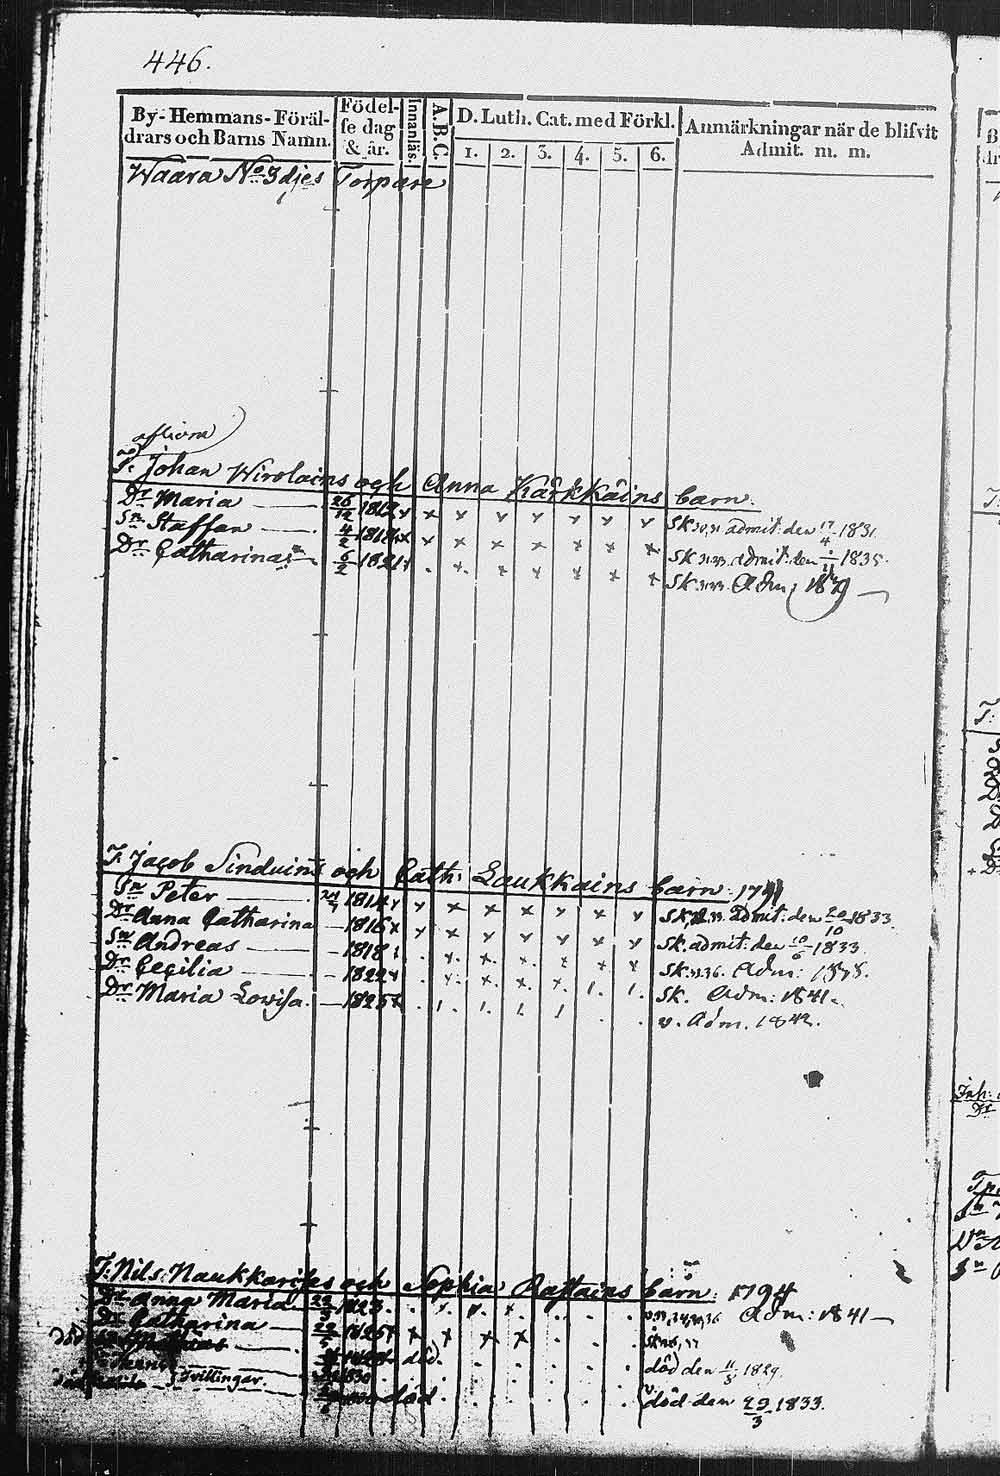 446.
By- Hemmans- Föräl-
drars och Barns Namn.
Födel-
se dag
& år.
Innanläs.
A.B.C.
D. Luth. Cat. med Förkl.
1. 2. 3. 4. 5. 6.
Anmärkningar när de blifvit
Admit. m. m.
Waara No 3djes Torpare
T. Johan Wirolains och Anna Kärkkäins barn.
Dr Maria 1812 x x x x x x x x Sk admit: den 17/4 1831
Sn Staffan 4/2 1818 x x x x x x x x Sk admit: den 1835.
Dr Catharina 6/2 1821 x . x x x x x x Sk Adm:
T. Jacob Sinduins och Cath: Laukkains barn: 1791
Sn Peter 1814 x x x x x x x x Sk admit: den 20/10 1833
Dr Anna Catharina 1816 x x x x x x x x Sk. admit: den 1833
Sn Andreas 1818 . x x x x x x Sk. 31.36. Adm:
Dr Cecilia 1822 x . x x x x 1. 1. Sk. Adm: 1841.
Dr Maria Lovisa 1825 x . 1. 1. 1. 1 . . v. Adm. 1842.
T: Nils Naukkarises och Sophia Rastains barn: 1794
Dr Anna Maria 1823 Adm: 1841
Dr Catharina 1825 x x x x x
död död den 11/5 1829
Tvillingar. död död den 29/3 1833.